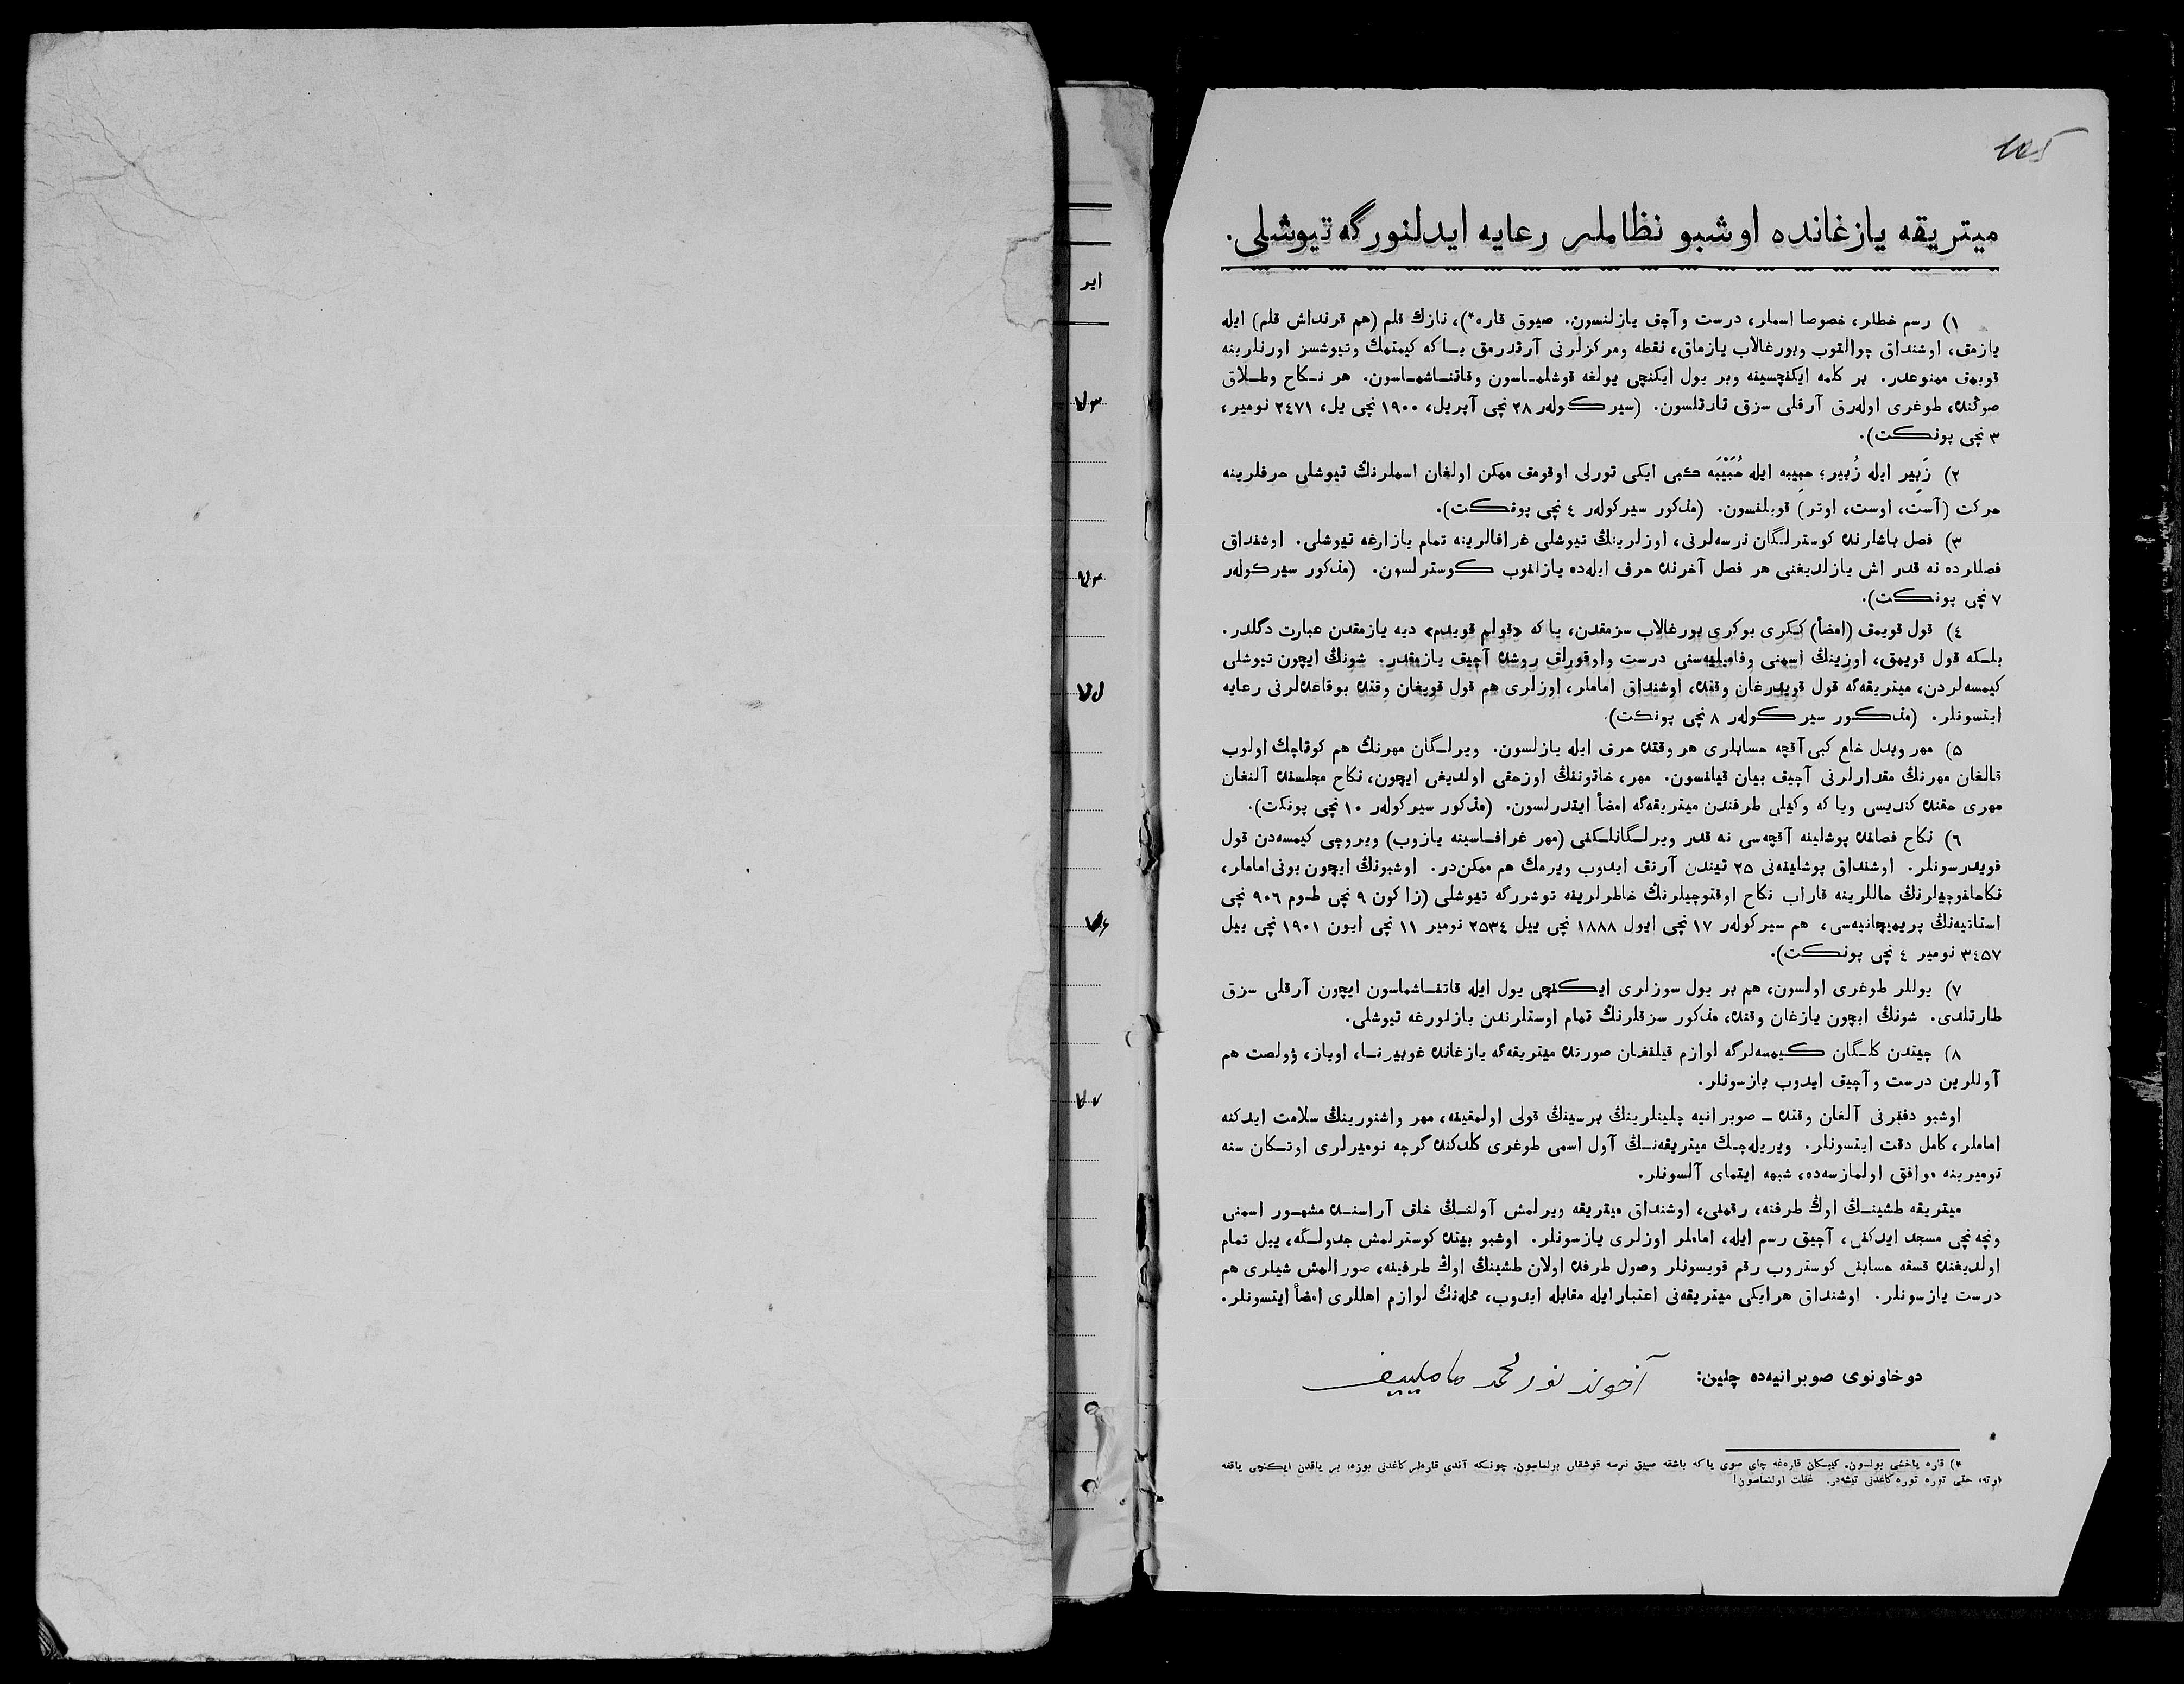 105
میتریقه یازغانده اوشبو نظاملر رعایه ایدلنورگه تیوشلی.
۱) رسم خطلر، خصوصا اسملر، درست و آچق یازلنسون. صیوق قاره*)، نازك قلم (هم قرنداش قلم) ایله
یازمق، اوشنداق چوالقوب وبورغالاب یازماق، نقطه ومرکزلرنی آرتدرمق یـاکه کیمتمك وتیوشسز اورنلرینه
قویمق ممنوعدر. بر کلمه ایکنچسینه وبر یول ایکنچی یولغه قوشلمـاسون وقاتنـاشمـاسون. هر نـکاح وطـلاق
صوڭنده، طوغری اوله‌رق آرقلی سزق تارتلسون. (سیرکوله‌ر ۲۸ نچی آپریل، ۱۹۰۰ نچی یل، ۲٤۷۱ نومیر،
۳ نچی پونکت).
۲) زَبِیر ایله زُبیر؛ حبِیبه ایله حُبَیْبَه کبی ایکی تورلی اوقومق ممکن اولغان اسملرنڭ تیوشلی حرفلرینه
حرکت (آست، اوست، اوتر) قویلنسون. (مذکور سیرکوله‌ر ٤ نچی پونکت).
۳) فصل باشلرنده کوسترلـگان نرسه‌لرنی، اوزلرینڭ تیوشلی غرافالرینه تمام یازارغه تیوشلی. اوشنداق
فصللرده نه قدر اش یازلدیغنی هر فصل آخرنده حرف ایله‌ده یازلنوب کوسترلسون. (مذکور سیرکوله‌ر
۷ نچی پونکت).
٤) قول قویمق (امضأ) کـکری بوکری بورغالاب سزمقدن، یا که «قولم قویدم» دیه یازمقدن عبارت دگلدر.
بلـکه قول قویمق، اوزینڭ اسمنی وفامیلیه‌سنی درست واوقورلق روشده آچیق یازمقدر. شونڭ ایچون تیوشلی
کیمسه‌لردن، میتریقه‌گه قول قویدرغان وقتده، اوشنداق اماملر، اوزلری هم قول قویغان وقتده بوقاعده‌لرنی رعایه
ایتسونلر. (مذکـور سیرکوله‌ر ۸ نچی پونکت).
۵) مهر وبدل خلع کبی آقچه حسابلری هر وقتده حرف ایله یازلسون. ویرلـگان مهرنڭ هم کوتاچك اولوب
قالغان مهرنڭ مقدارلرنی آچیق بیان قیلنسون. مهر، خاتوننڭ اوزحقی اولدیغی ایچون، نکاح مجلسنده آلنغان
مهری حقنده کندیسی ویا که وکیلی طرفندن میتریقه‌گه امضأ ایتدرلسون. (مذکور سیرکوله‌ر ۱۰ نچی پونکت).
٦) نکاح فصلنده پوشلینه آقچه‌سی نه قدر ویرلـگانلـکنی (مهر غرافـاسینه یازوب) ویروچی کیمسه‌دن قول
قویدرسونلر. اوشنداق پوشلینه‌نی ۲۵ تیندن آرتق ایدوب ویرمك هم ممکن‌در. اوشبونڭ ایچون بونی اماملر،
نکاحلنوچیلرنڭ حاللرینه قاراب نکاح اوقتوچیلرنڭ خاطرلرینه توشررگه تیوشلی (زاکون ۹ نچی طـوم ۹۰٦ نچی
استاتیه‌نڭ پریمیچانیه‌سی، هم سیرکوله‌ر ۱۷ نچی ایول ۱۸۸۸ نچی ییل ۲۵۳٤ نومیر ۱۱ نچی ایون ۱۹۰۱ نچی ییل
۳٤۵۷ نومیر ٤ نچی پونکت).
۷) یوللر طوغری اولسون، هم بر یول سوزلری ایکنچی یول ایله قاتنـاشماسون ایچون آرقلی سزق
طارتلدی. شونڭ ایچون یازغان وقتده، مذکور سزقلرنڭ تمام اوستلرندن یازلورغه تیوشلی.
۸) چیتدن کلـگان کیمسه‌لرگه لوازم قیلنغـان صورتده میتریقه‌گه یازغانده غوبیرنـا، اویاز، ۋولصت هم
آوللرین درست و آچیق ایدوب یازسونلر.
اوشبو دفترنی آلغان وقتده ـ صوبرانیه چلینلرینڭ برسینڭ قولی اولمقینه، مهر واشنورینڭ سلامت ایدکنه
اماملر، کامل دقت ایتسونلر. ویریله‌چـك میتریقه‌نـڭ آول اسمی طوغری کلدکنده گرچه نومیرلری اوتـکان سنه
نومیرینه موافق اولمازسه‌ده، شبهه ایتمای آلسونلر.
میتریقه طشینـڭ اوڭ طرفنه، رقمنی، اوشنداق میتریقه ویرلمش آولنـڭ خلق آراسنـده مشهـور اسمنی
ونچه نچی مسجد ایدکنی، آچیق رسم ایله، اماملر اوزلری یازسونلر. اوشبو بیتده کوسترلمش جدولـگه، ییل تمام
اولدیغنده قسقه حسابنی کوستروب رقم قویسونلر وصول طرفده اولان طشینڭ اوڭ طرفینه، صورالمش شیلری هم
درست یازسونلر. اوشنداق هرایکی میتریقه‌نی اعتبارایله مقابله ایدوب، محله‌نڭ لوازم اهللری امضأ ایتسونلر.
دوخاونوی صوبرانیه‌ده چلین: آخوند نورمحمد ماملییف
*) قاره یاخشی بولسون. کیبـکان قاره‌غه چای صوی یا که باشقه صیق نرسه قوشقان بولماسون. چونـکه آندی قاره‌لر کاغدنی بوزه، بر یاقدن ایـکنچی یاققه
اوته، حتی توره توره کاغدنی تیشه‌در. غفلت اولنماسون!
ایر
۷۳
۷۳
۷۵
۷۶
۷۷